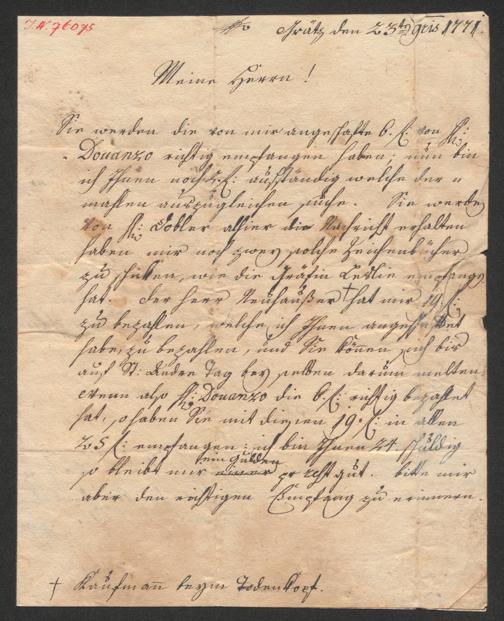 I.N. 76075
Grätz den 23t 9bris 1771.
Meine Herrn!
Sie werden die von mir angeschafte 6. f: von H:
Douanzo richtig empfangen haben; nun bin
ich Ihnen noch f: ausständig welche der
mahlen auszugleichen suche. Sie werden
von H: Dobler alhier die Nachricht erhalten
haben mir noch zwey solche Zeichenbücher
zu schicken, wie die Gräfin Leslie empfangen
hat. der Herr Neuhauser † hat mir 19 f:
zu bezahlen, welche ich Ihnen
habe, zu bezahlen, und Sie können sich bis
auf St: Andre Tag bey selben darum melden
wenn also H: Douanzo die 6. f: richtig bezahlet
hat, so haben Sie mit diesen 19. f: in allen
25 f: empfangen: ich bin Ihnen 24. schuldig
so bleibt mir ein Gulden gut. bitte mir
aber den richtigen Empfang zu erinnern.
† Kaufmann beym Todenkopf.